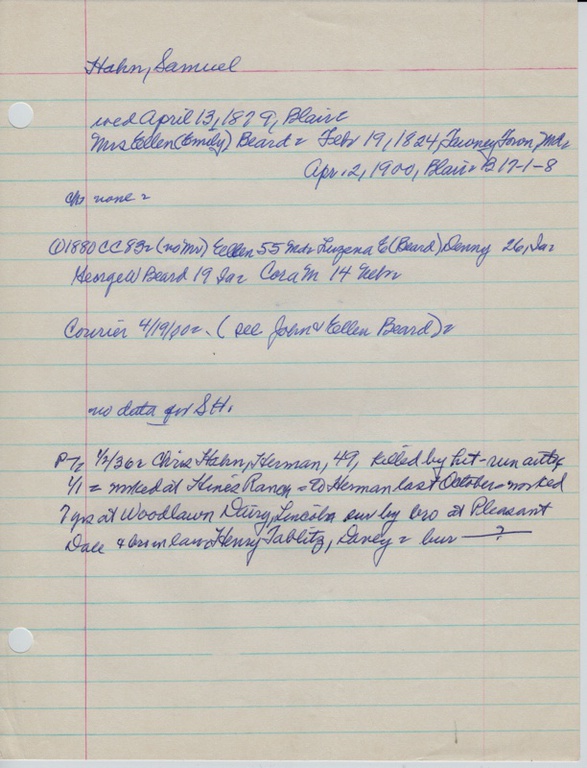 Hahn, Samuel
wed April 13, 1879, Blair
Mrs Ellen (Emily) Beard = Febr 19, 1824, Tawney Town, Md,
Apr. 2, 1900, Blair = B 17-1-8
c/o none =
① 1880 CC 93 = (no Mr) Ellen 55 Md = Luzena E (Beard) Denny 26, Ia =
George W Beard 19 Ia = Cora M 14 Nebr
Courier 4/19/00 =. (see John & Ellen Beard) =
no data for SH.
P T = 1/2/36 = Chris Hahn, Herman, 49, killed by hit-run auto,
1/1 = worked at Hines Ranch = to Herman last October = worked
7 yrs at Woodlawn Dairy, Lincoln sur by bro at Pleasant
Dale & bro in law Henry Tablitz, Davey = bur — ? —